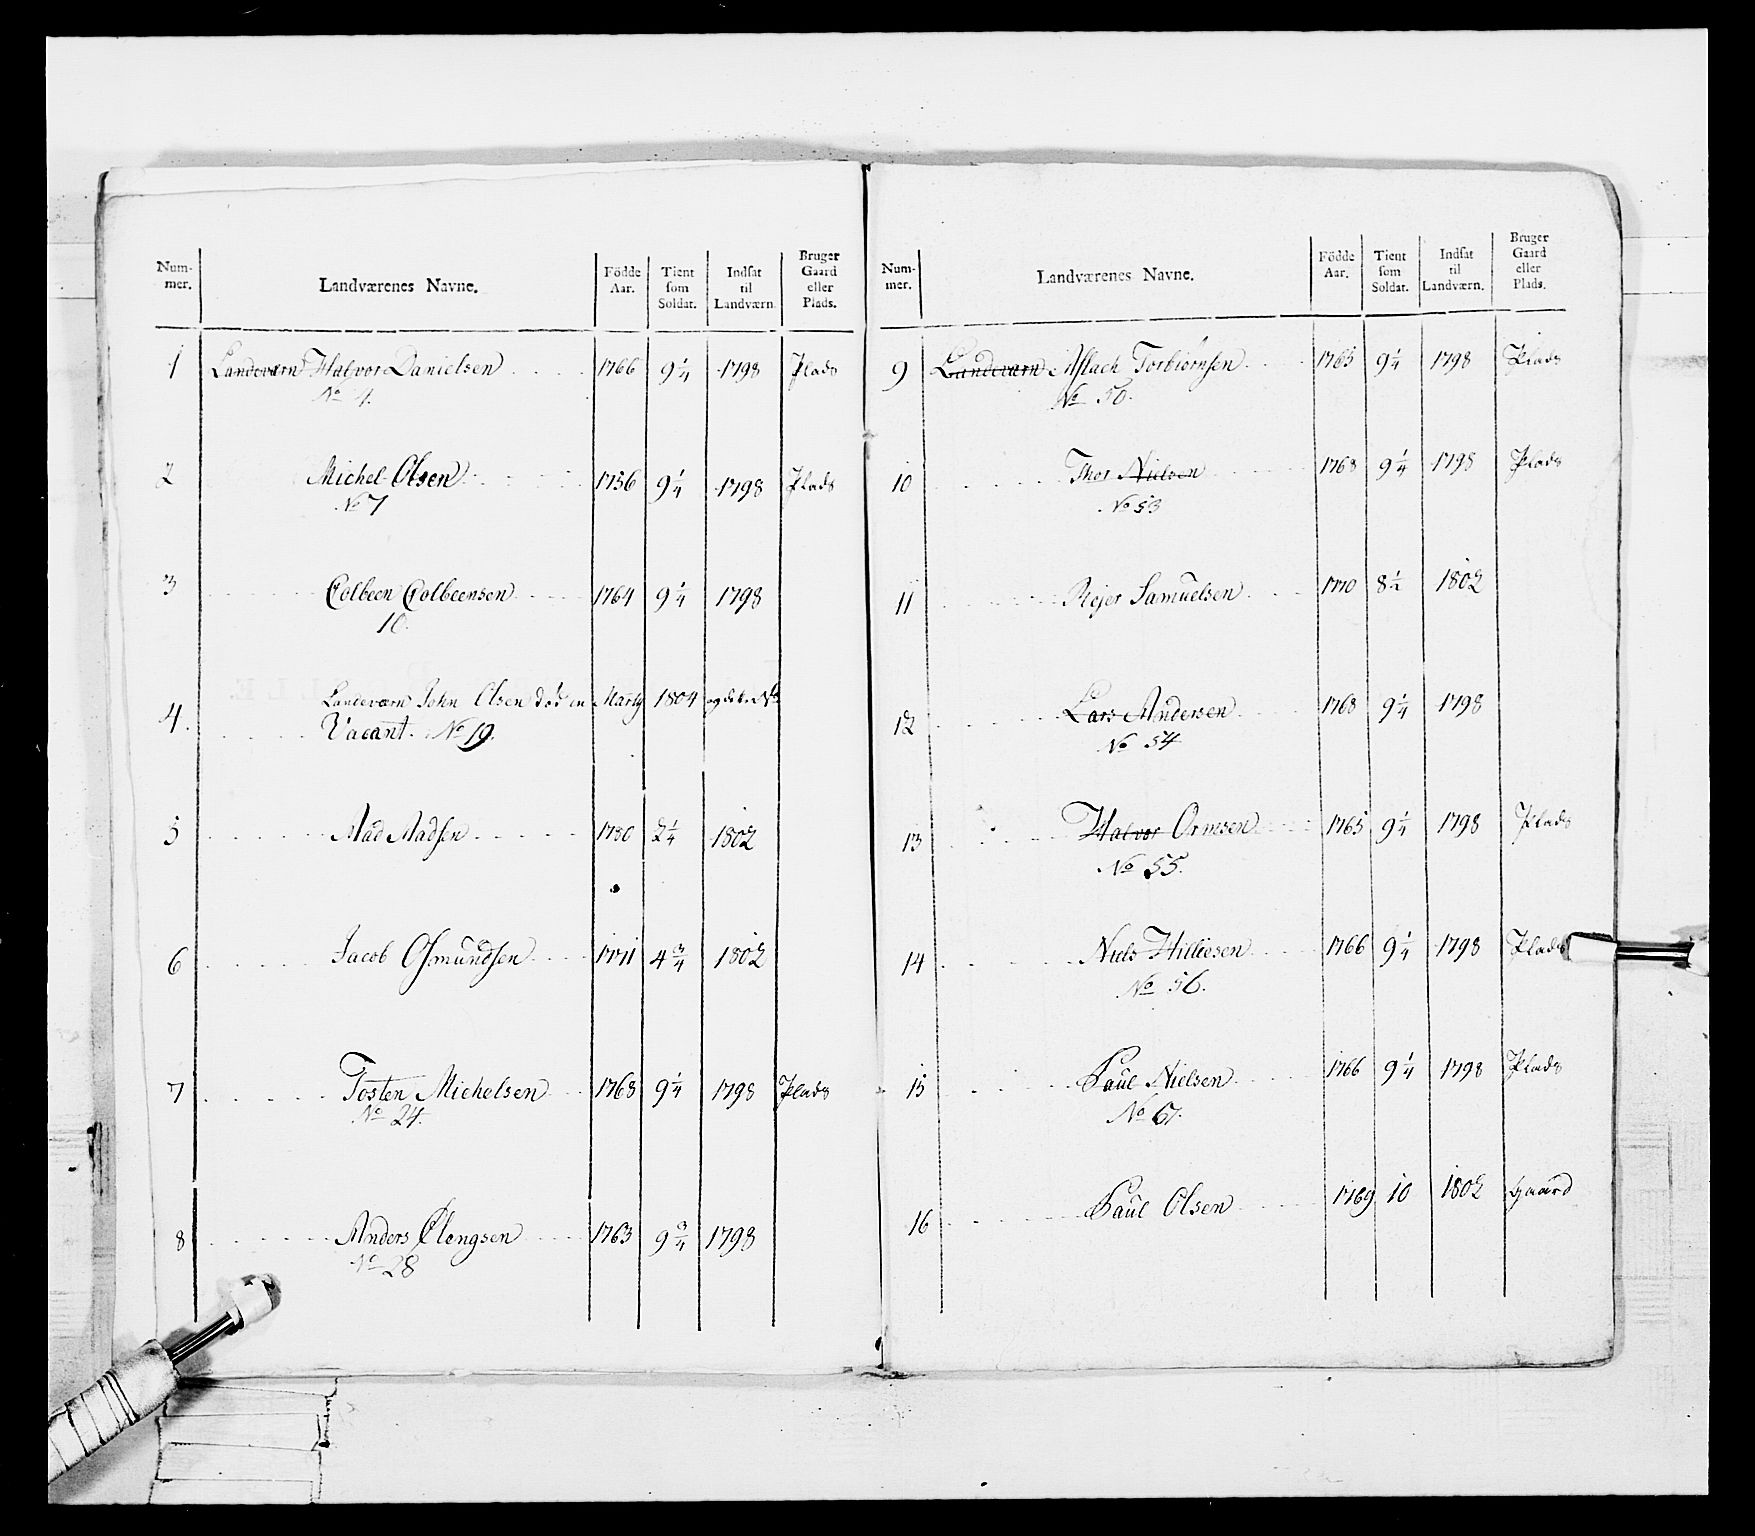 Num-mer. Landværenes Navne. Födde Aar. Tient som Soldat. Indsat til Landværn. Bruger Gaard eller Plads.
1 Landeværn Halvor Danielsen 1766 9 1/4 1798 Plads
No 4.
2 Michel Olsen 1756 9 1/4 1798 Plads
No 7
3 Colbeen Colbeensen 1764 9 1/4 1798
10.
Landeværn John Olsen död en Marty 1804 og dette No
4. Vacant. No 19.
5 Mad Madsen 1780 2 1/4 1802
6 Jacob Osmundsen 1771 4 3/4 1802
7 Tosten Michelsen 1768 9 1/4 1798 Plads
No 24.
8 Anders Clengsen 1763 9 3/4 1798
No 28
Num-mer. Landværenes Navne. Födde Aar. Tient som Soldat. Indsat til Landværn. Bruger Gaard eller Plads.
9 Landeværn Aslach Torbiørnsen 1765 9 1/4 1798 Plads
No 50.
10 Thor Nielsen 1768 9 1/4 1798 Plads
No 53
11 Rejer Samuelsen 1770 8 1/2 1802
12 Lars Andersen 1768 9 1/4 1798
No 54
13 Halvor Ormsen 1765 9 1/4 1798 Plads
No 55.
14 Niels Hilliesen 1766 9 1/4 1798 Plads
No 56.
15 Paul Nielsen 1766 9 1/4 1798 Plads
No 67.
16 Paul Olsen 1769 10 1802 Gaard